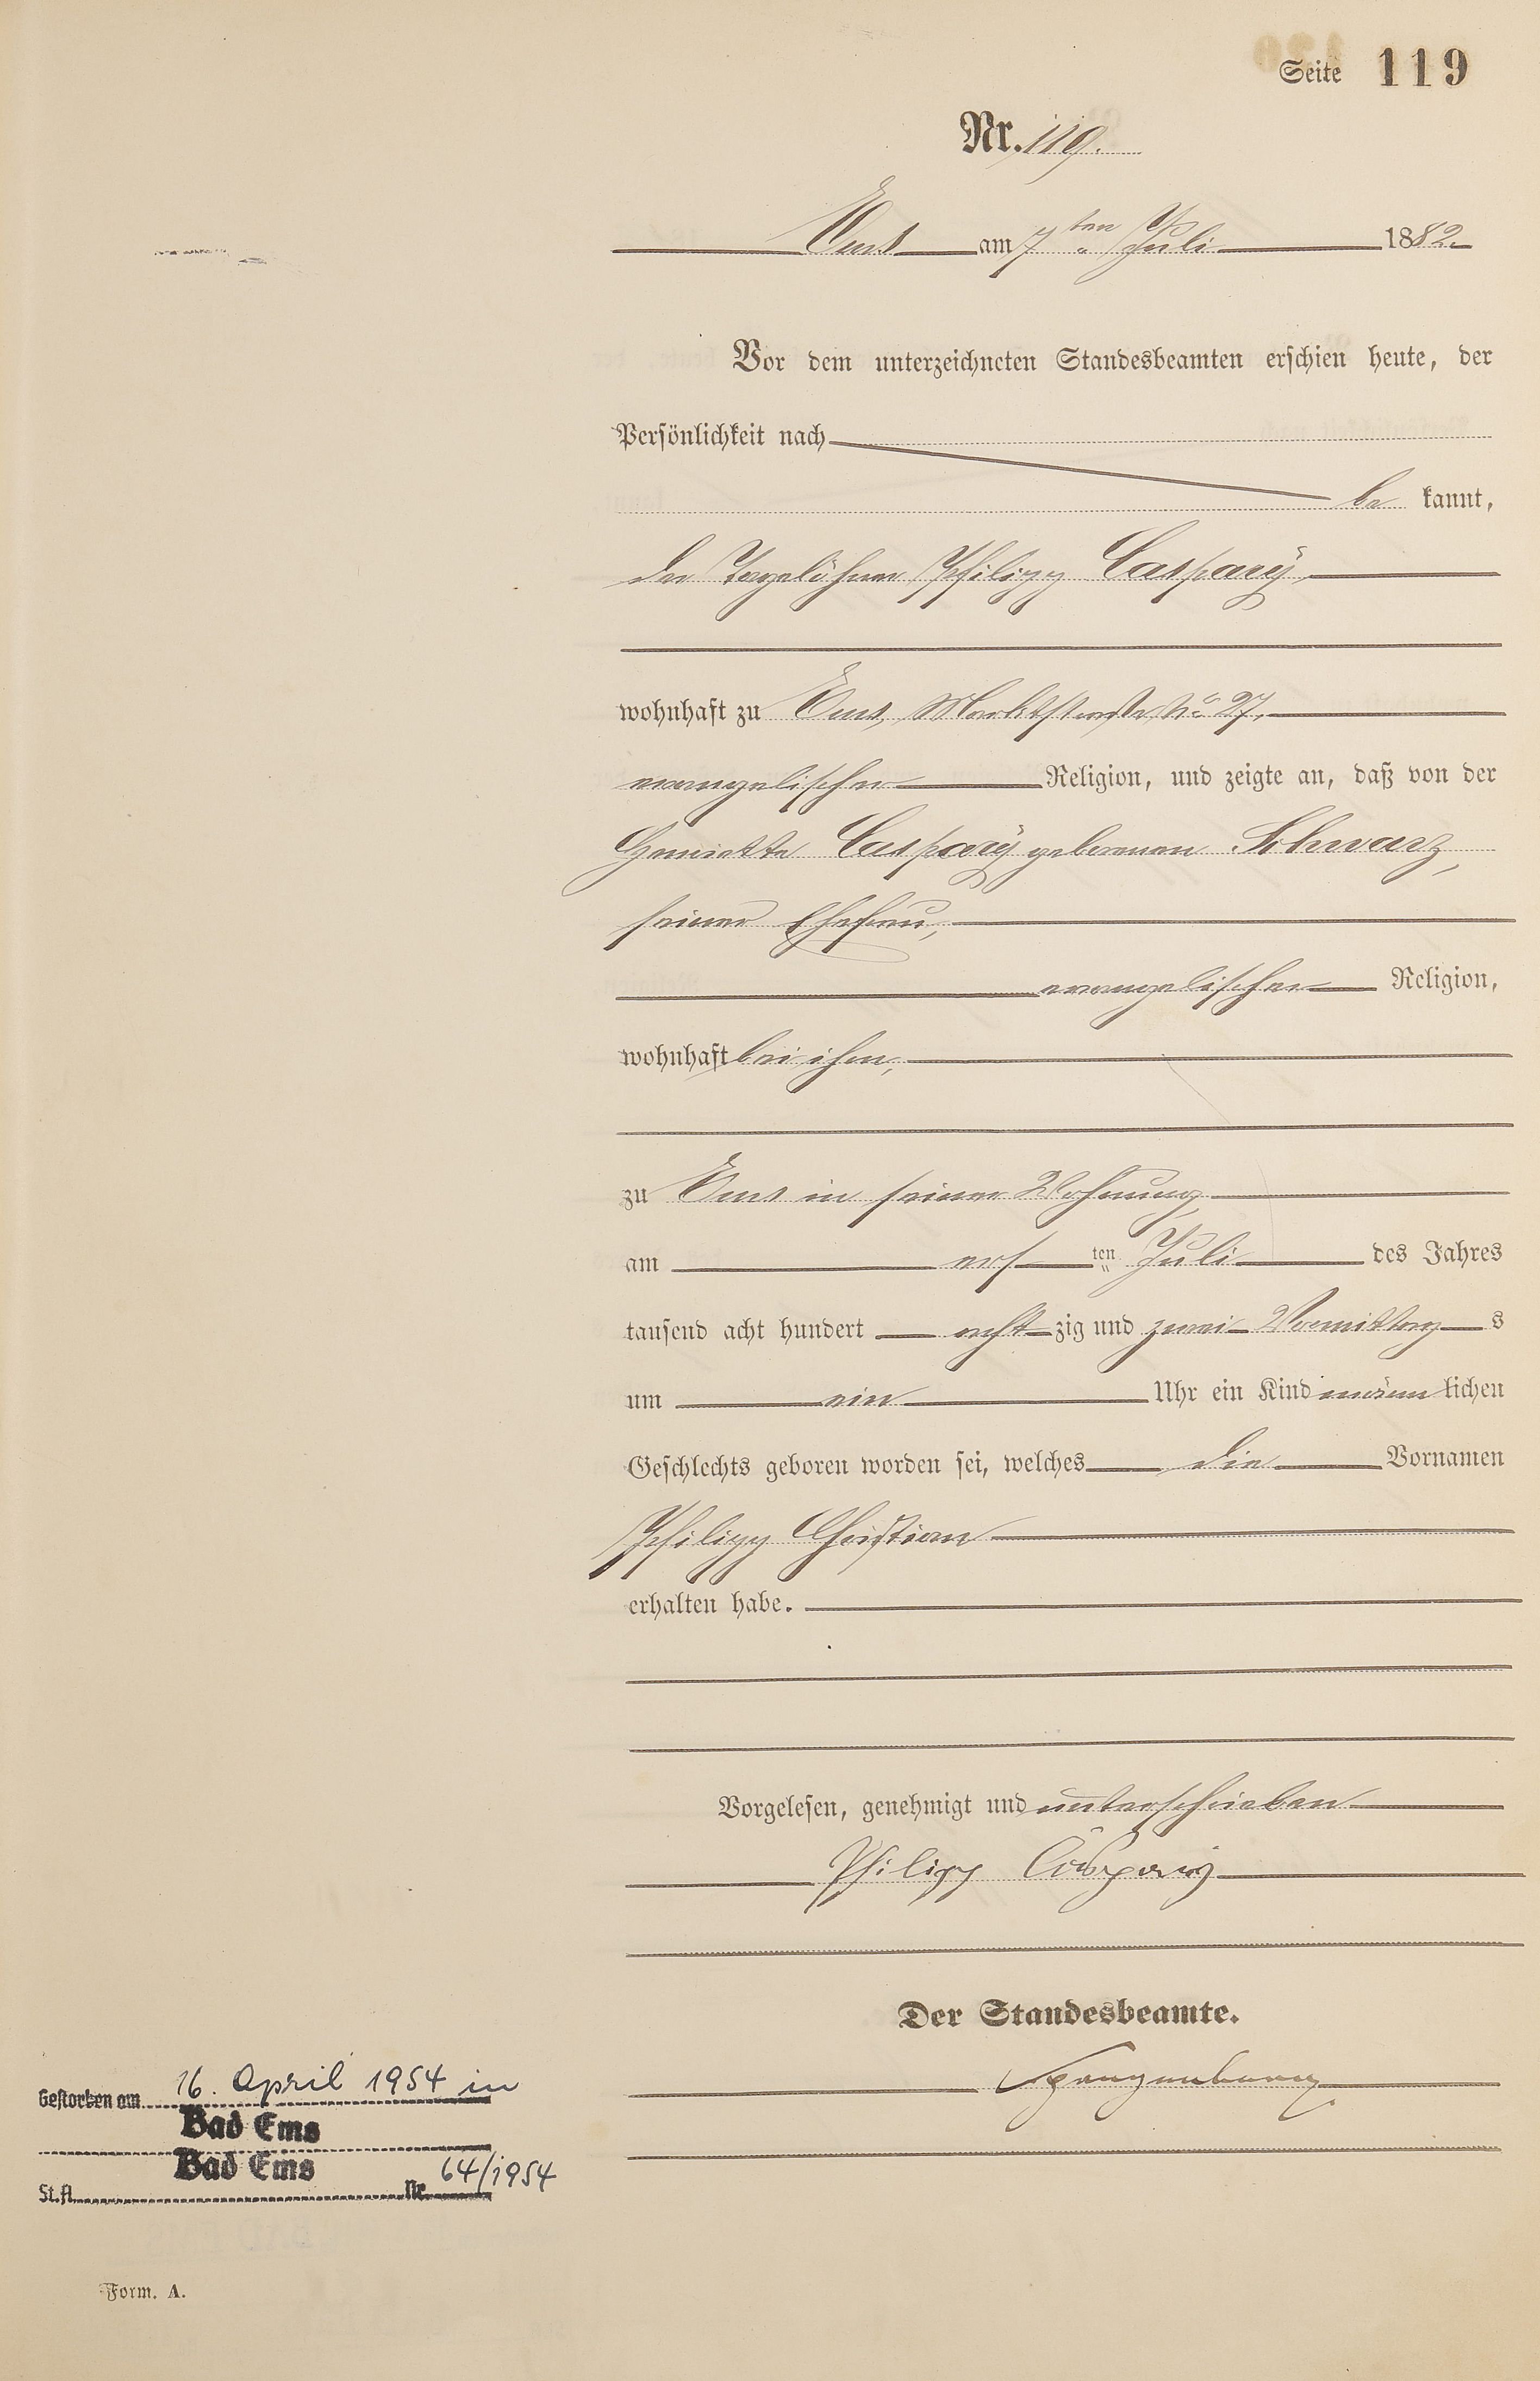 Seite 119
Nr. 119.
Ems am 7ten Juli 1882.
Vor dem unterzeichneten Standesbeamten erschien heute, der
Persönlichkeit nach
be kannt,
der Tagelöhner Philipp Caspary,
wohnhaft zu Ems, Marktstraße No 27,
evangelischer Religion, und zeigte an, daß von der
Caspary geborenen Schwarz,
seiner Ehefrau,
evangelischer Religion,
wohnhaft bei ihm,
zu Ems in seiner Wohnung
am ers ten Juli des Jahres
tausend acht hundert acht zig und zwei Vormittag s
um ein Uhr ein Kind männ lichen
Geschlechts geboren worden sei, welches die Vornamen
Philipp Christian
erhalten habe.
Vorgelesen, genehmigt und unterschrieben
Philipp Caspary
Der Standesbeamte.
Gestorben am 16. April 1954 in
Bad Ems
Bad Ems
St.A. Nr. 64/1954
Form. A.